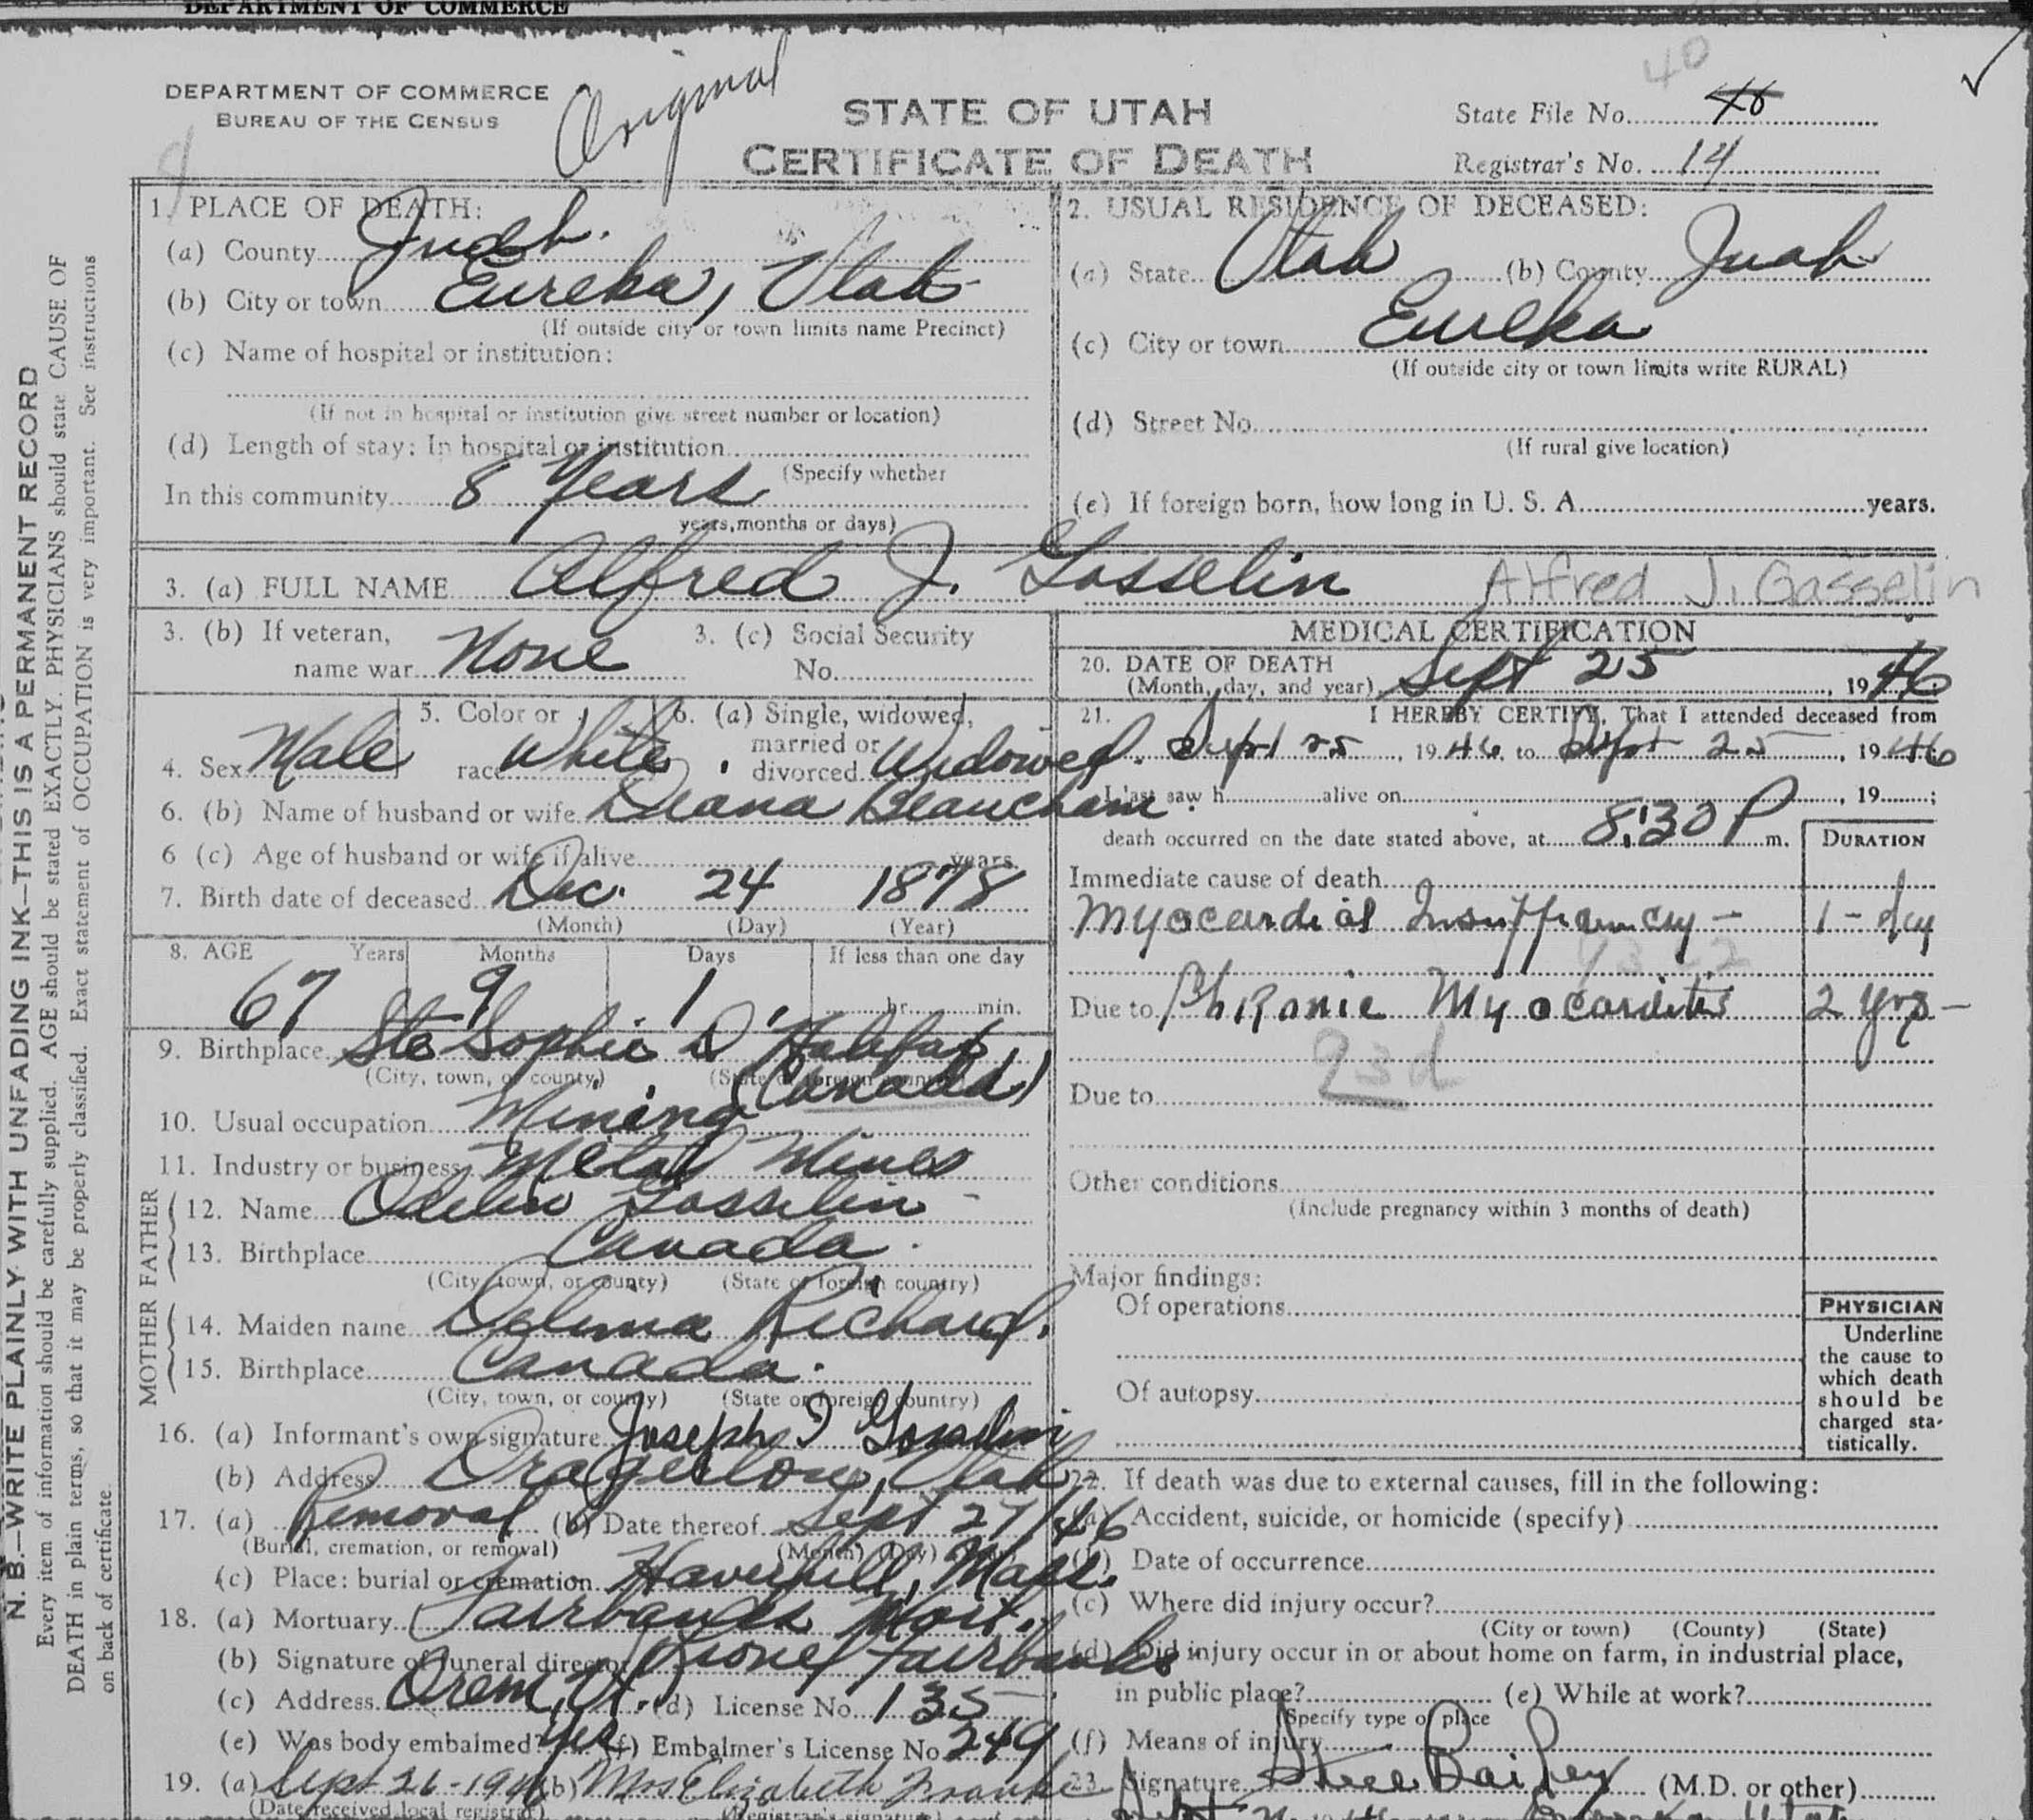 DEPARTMENT OF COMMERCE
40
DEPARTMENT OF COMMERCE
BUREAU OF THE CENSUS
Original
STATE OF UTAH
CERTIFICATE OF DEATH
State File No. 40
Registrar's No. 14
N. B.—WRITE PLAINLY WITH UNFADING INK—THIS IS A PERMANENT RECORD
Every item of information should be carefully supplied. AGE should be stated EXACTLY. PHYSICIANS should state CAUSE OF
DEATH in plain terms, so that it may be properly classified. Exact statement of OCCUPATION is very important. See instructions
on back of certificate.
1. PLACE OF DEATH:
(a) County Juab.
(b) City or town Eureka, Utah
(If outside city or town limits name Precinct)
(c) Name of hospital or institution:
(If not in hospital or institution give street number or location)
(d) Length of stay: In hospital or institution
(Specify whether
In this community 8 Years
years, months or days)
2. USUAL RESIDENCE OF DECEASED:
(a) State Utah (b) County Juab
(c) City or town Eureka
(If outside city or town limits write RURAL)
(d) Street No.
(If rural give location)
(e) If foreign born, how long in U. S. A. years.
3. (a) FULL NAME Alfred J. Gosselin Alfred J. Gasselin
3. (b) If veteran,
name war None
3. (c) Social Security
No.
4. Sex Male
5. Color or
race White
6. (a) Single, widowed,
married or
divorced Widowed.
6. (b) Name of husband or wife Deana Beaucham.
6 (c) Age of husband or wife if alive years
7. Birth date of deceased Dec. 24 1878
(Month) (Day) (Year)
8. AGE Years Months Days If less than one day
67 9 1 hr. min.
9. Birthplace Ste Sophie D Halifax, (Canada)
(City, town, or county) (State or foreign country)
10. Usual occupation Mining
11. Industry or business Metal Mines
FATHER
12. Name Gosselin
13. Birthplace Canada.
(City, town, or county) (State or foreign country)
MOTHER
14. Maiden name Delima Richard.
15. Birthplace Canada.
(City, town, or county) (State or foreign country)
16. (a) Informant's own signature Joseph Gosselin
(b) Address Dragerton, Utah
17. (a) Removal (b) Date thereof Sept 27/46
(Burial, cremation, or removal) (Month) (Day)
(c) Place: burial or cremation Haverhill, Mass.
18. (a) Mortuary Fairbanks Mort.
(b) Signature of funeral director Lionel Fairbanks
(c) Address Orem, Ut. (d) License No. 135
(e) Was body embalmed? Yes (f) Embalmer's License No. 249
19. (a) Sept 26-1946 (b) Mrs Elizabeth Franke
(Date received local registrar) (Registrar's signature)
MEDICAL CERTIFICATION
20. DATE OF DEATH
(Month, day, and year) Sept 25, 1946
21. I HEREBY CERTIFY, That I attended deceased from
Sept 25, 1946, to Sept 25, 1946
I last saw h alive on , 19 ;
death occurred on the date stated above, at 8:30 P m.
DURATION
Immediate cause of death
Myocardial Insufficiency — 1 - day
Due to Chronic Myocarditis 2 yrs —
93d
Due to
Other conditions
(Include pregnancy within 3 months of death)
Major findings:
Of operations
Of autopsy
PHYSICIAN
Underline
the cause to
which death
should be
charged sta-
tistically.
22. If death was due to external causes, fill in the following:
(a) Accident, suicide, or homicide (specify)
(b) Date of occurrence
(c) Where did injury occur?
(City or town) (County) (State)
(d) Did injury occur in or about home on farm, in industrial place,
in public place? (e) While at work?
(Specify type of place
(f) Means of injury
23. Signature Steele Bailey (M.D. or other)